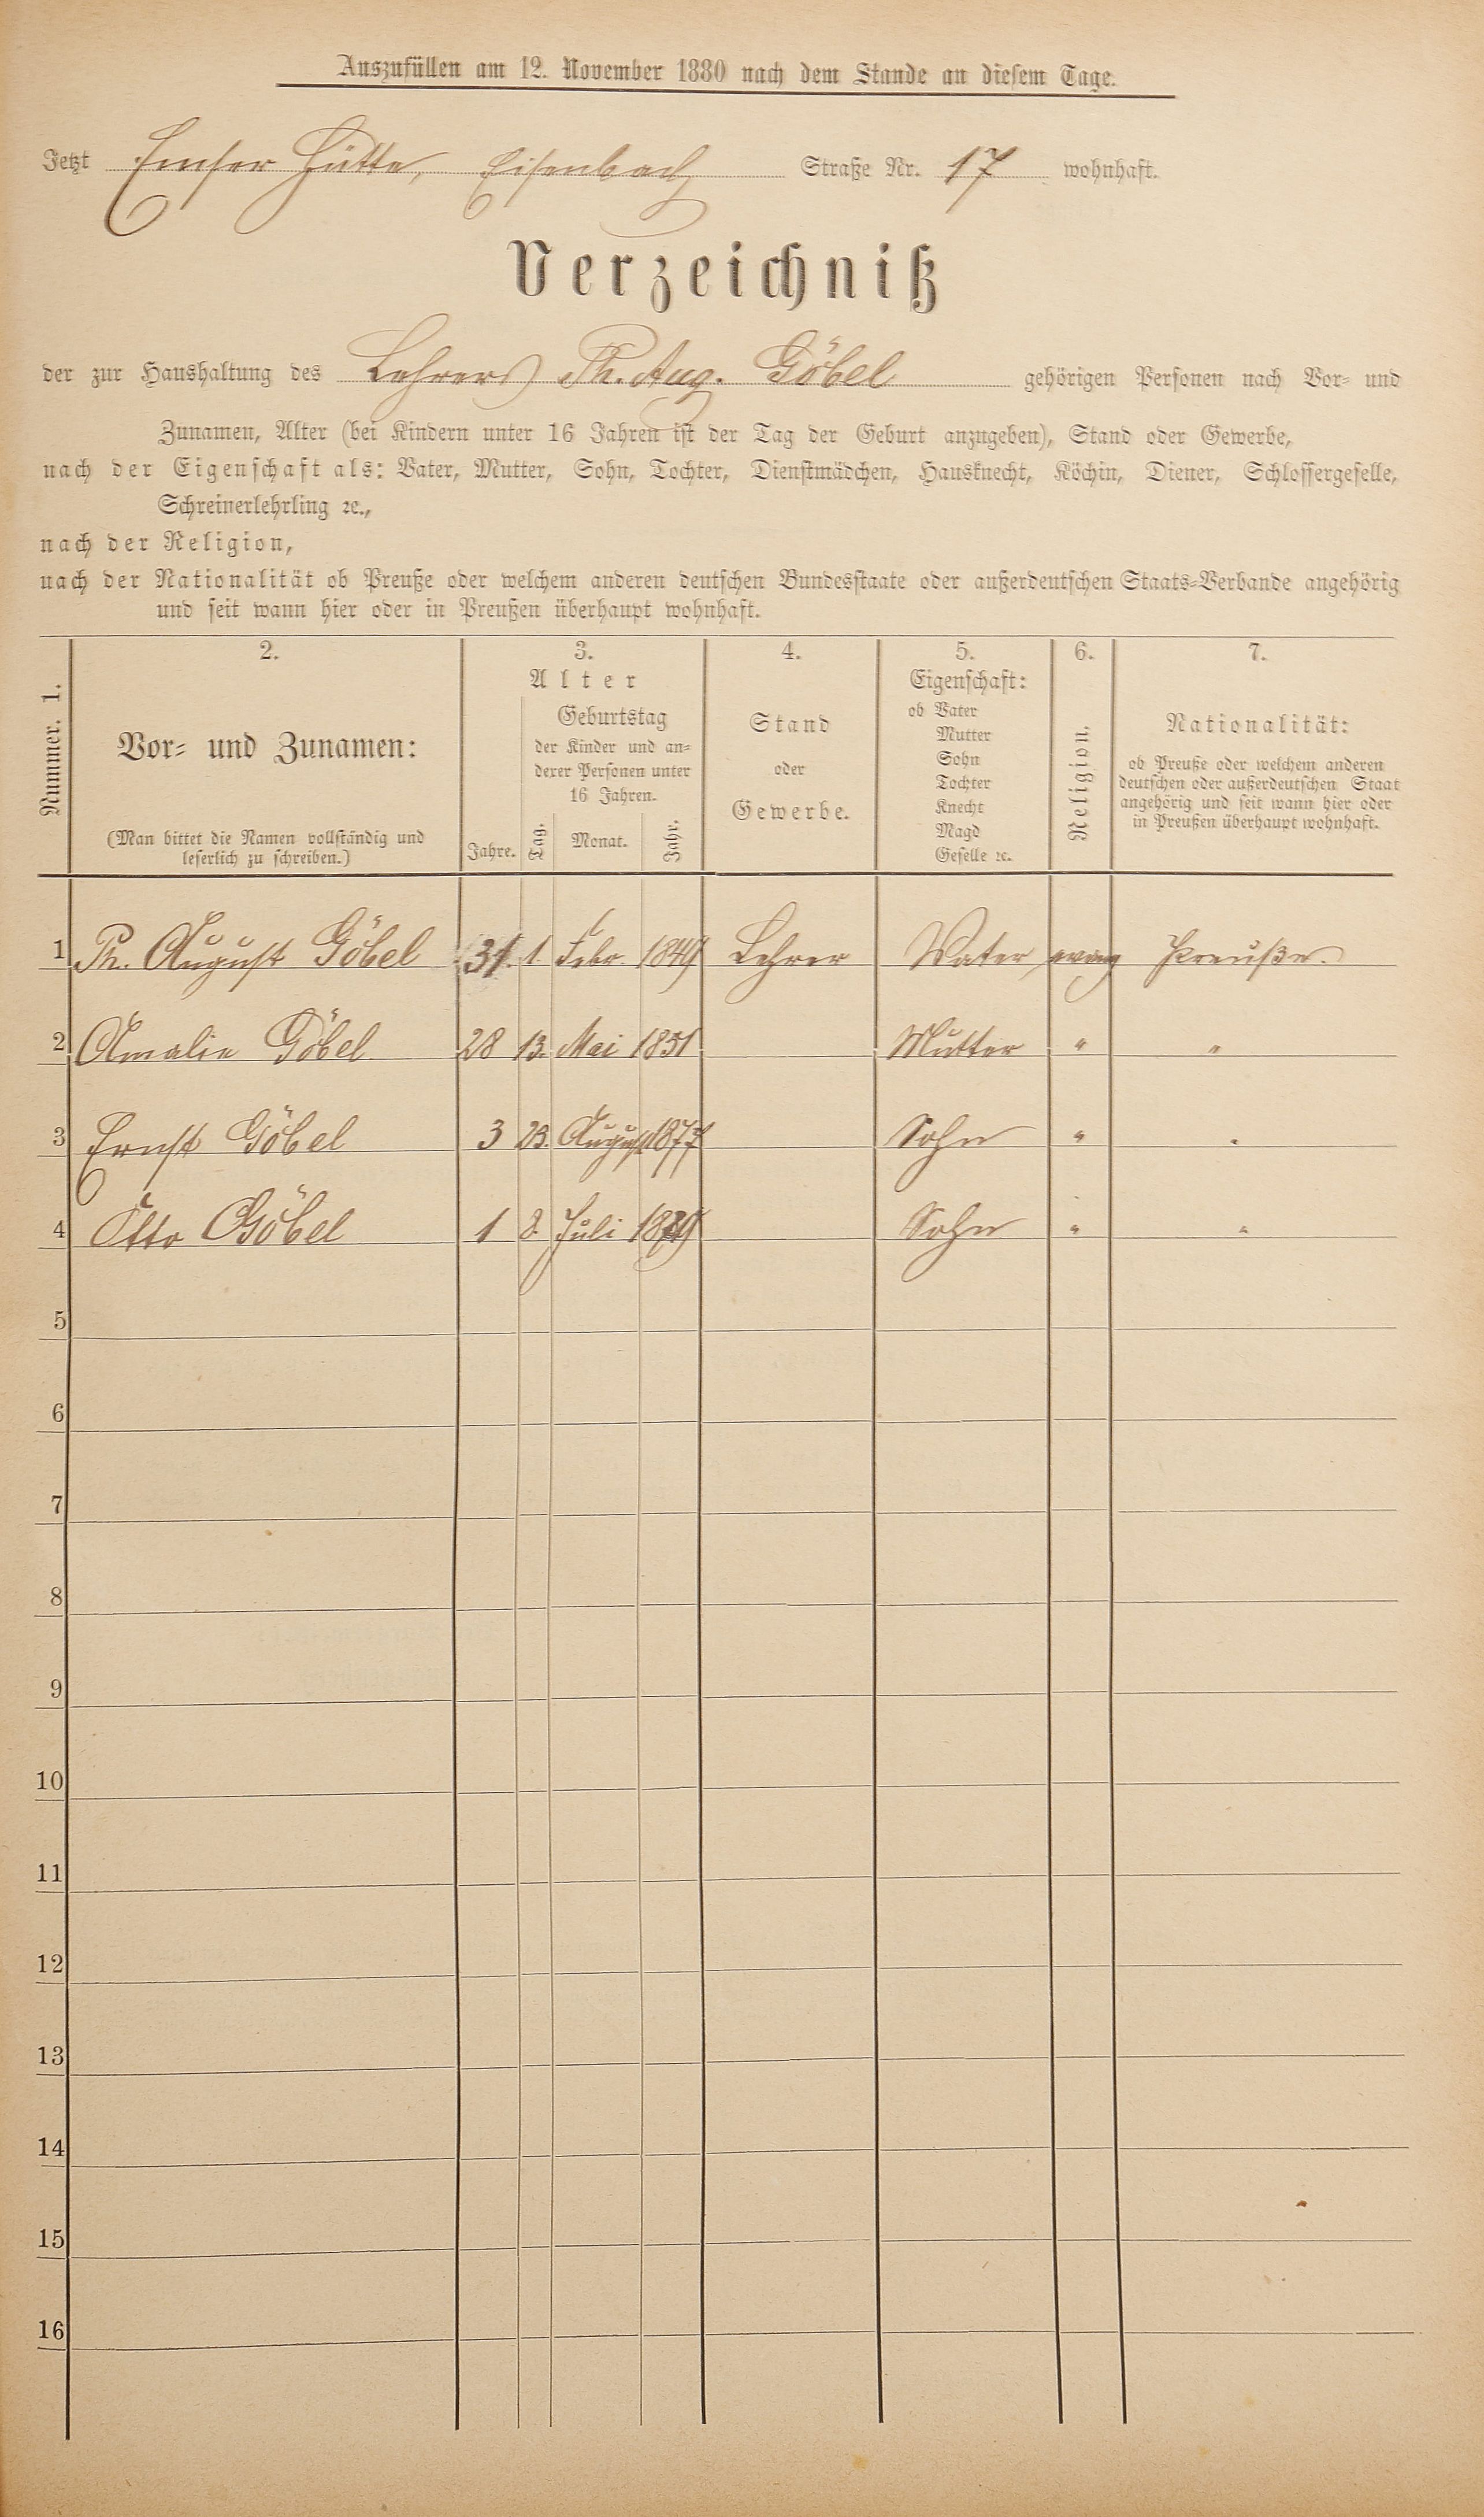 Auszufüllen am 12. November 1880 nach dem Stande an diesem Tage.
Jetzt Emser Hütte, Eisenbach Straße Nr. 17 wohnhaft.
Verzeichniß
der zur Haushaltung des Lehrers Ph. Aug. Göbel gehörigen Personen nach Vor- und
Zunamen, Alter (bei Kindern unter 16 Jahren ist der Tag der Geburt anzugeben), Stand oder Gewerbe,
nach der Eigenschaft als: Vater, Mutter, Sohn, Tochter, Dienstmädchen, Hausknecht, Köchin, Diener, Schlossergeselle,
Schreinerlehrling ꝛc.,
nach der Religion,
nach der Nationalität ob Preuße oder welchem anderen deutschen Bundesstaate oder außerdeutschen Staats-Verbande angehörig
und seit wann hier oder in Preußen überhaupt wohnhaft.
Nummer. 1.
2.
Vor- und Zunamen:
(Man bittet die Namen vollständig und
leserlich zu schreiben.)
3.
Alter
Jahre.
Geburtstag
der Kinder und an-
derer Personen unter
16 Jahren.
Tag. Monat. Jahr.
4.
Stand
oder
Gewerbe.
5.
Eigenschaft:
ob Vater
Mutter
Sohn
Tochter
Knecht
Magd
Geselle ꝛc.
6.
Religion.
7.
Nationalität:
ob Preuße oder welchem anderen
deutschen oder außerdeutschen Staat
angehörig und seit wann hier oder
in Preußen überhaupt wohnhaft.
1 Ph. August Göbel 31. 1. Febr. 1849 Lehrer Vater evang Preuße.
2 Amalie Göbel 28 13. Mai 1851 Mutter " "
3 Ernst Göbel 3 23. August 1877 Sohn " "
4 Otto Göbel 1 8. Juli 1879 Sohn " "
5
6
7
8
9
10
11
12
13
14
15
16